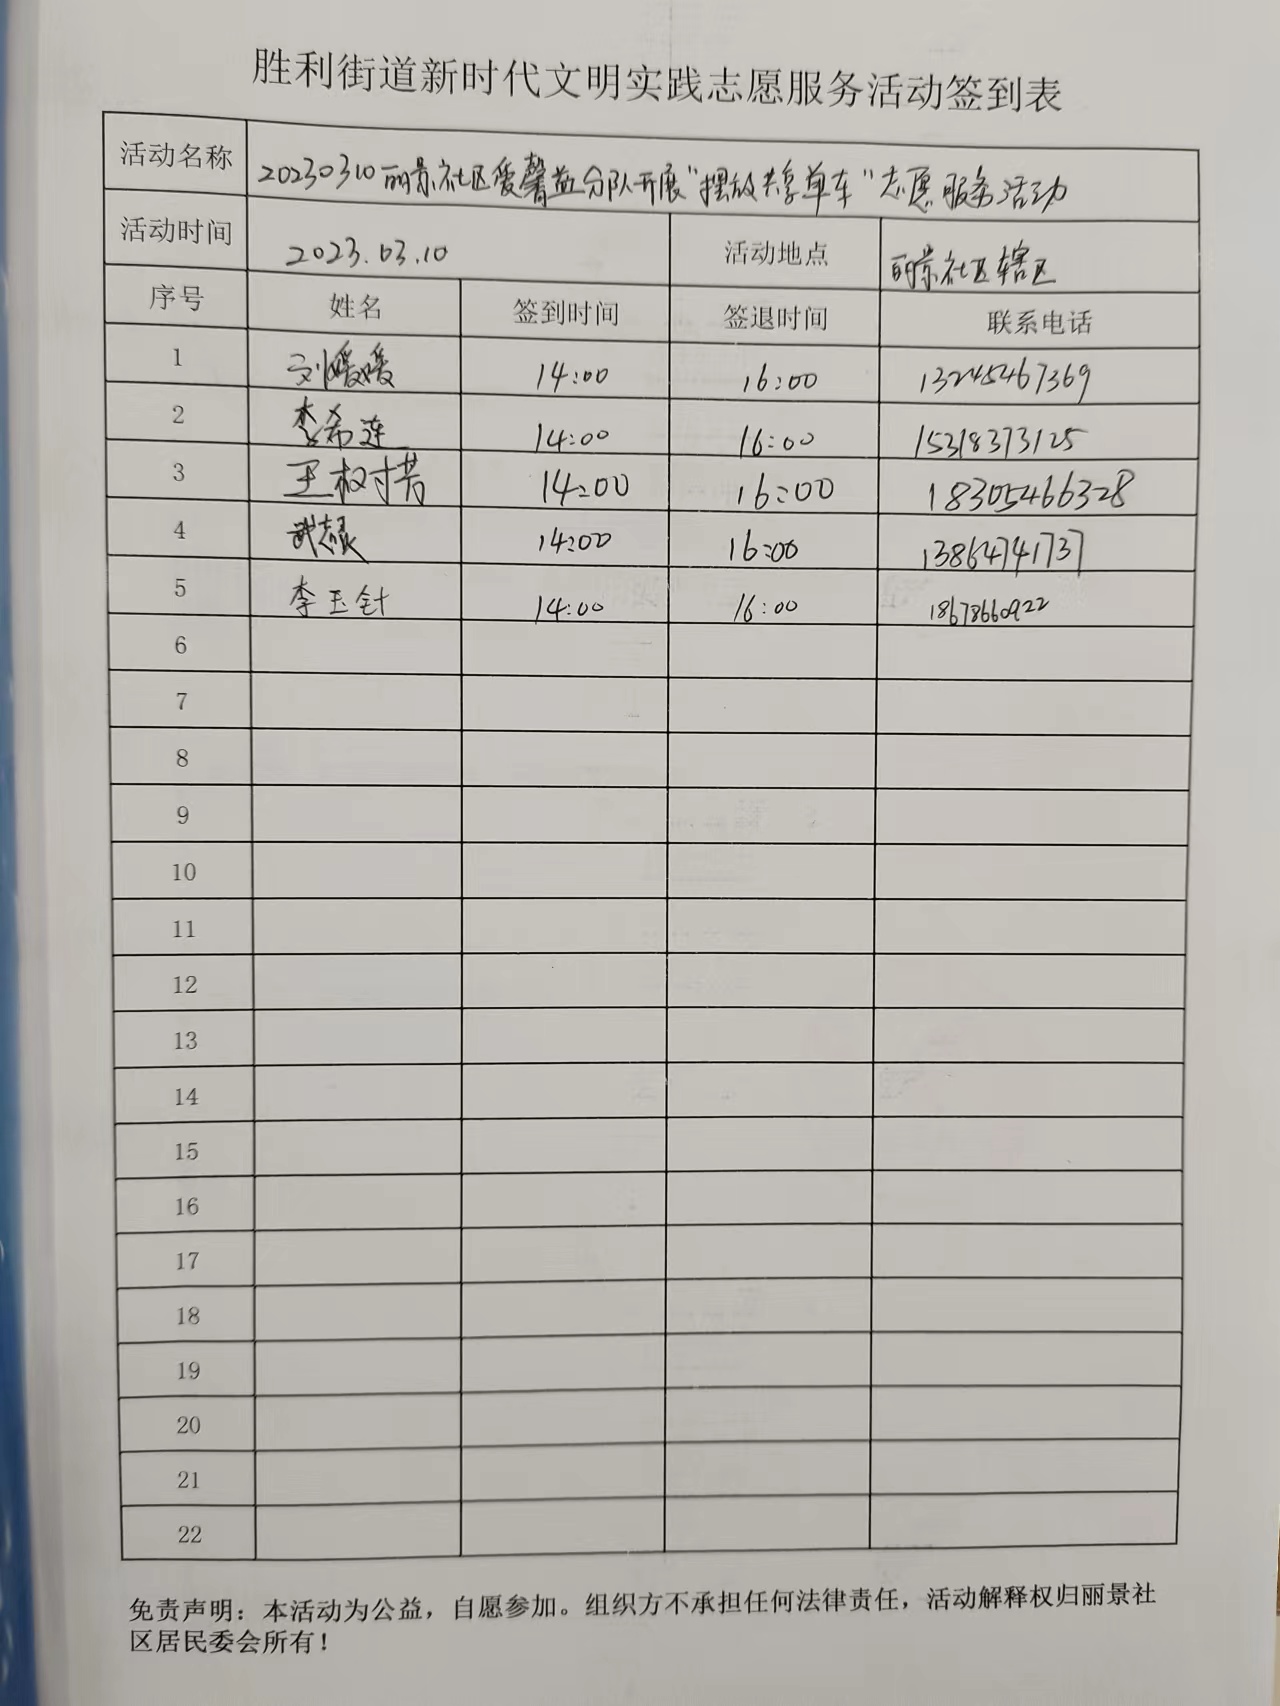 胜利街道新时代文明实践志愿服务活动签到表
活动名称 20230310丽景社区爱馨益分队开展“摆放共享单车”志愿服务活动
活动时间 2023.03.10 活动地点 丽景社区辖区
序号 姓名 签到时间 签退时间 联系电话
1 刘媛媛 14:00 16:00 13245467369
2 李希莲 14:00 16:00 15318373125
3 14:00 16:00 18305466328
4 14:00 16:00 13864741737
5 李玉针 14:00 16:00 18678660922
6
7
8
9
10
11
12
13
14
15
16
17
18
19
20
21
22
免责声明：本活动为公益，自愿参加。组织方不承担任何法律责任，活动解释权归丽景社
区居民委会所有！